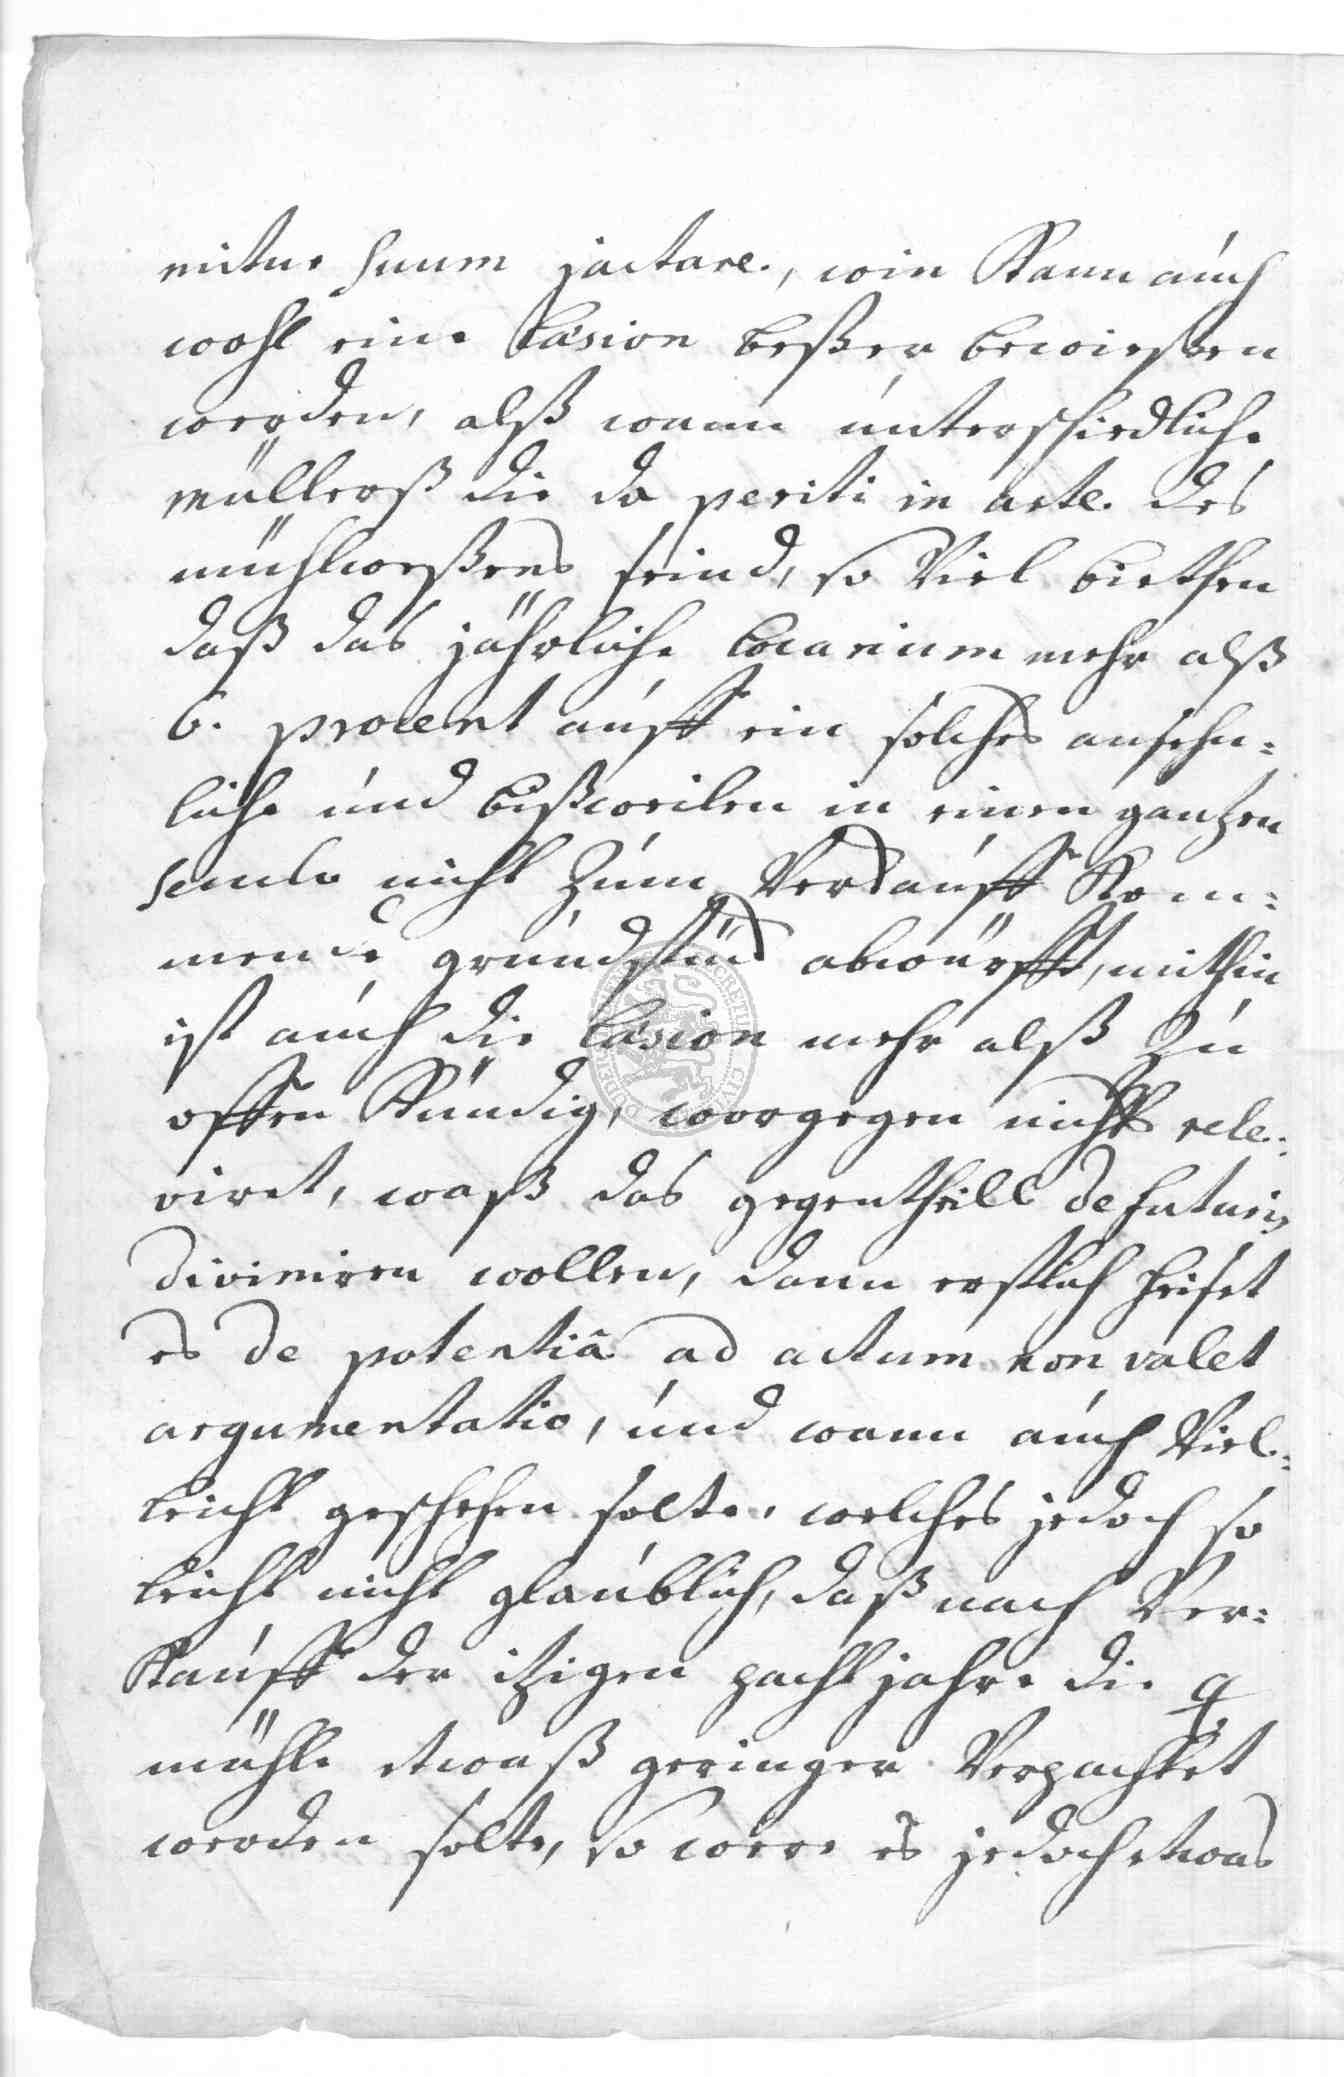 mitur suum jactare, wie kann auch
wohl eine læsion beßer bewießen
werden, alß wann unterschiedliche
müllerß die da periti in arte des
mühlweßens seind, so viel biethen
daß das jährliche locarium mehr alß
6. procent auff ein solches ansehn=
liche und bißweilen in einen gantzen
seculo nicht zum verkauff kom=
mende grundstück abwürfft, mithin
ist auch die læsion mehr alß zu
offen kündig, woorgegen nichts rele=
viret, waß das gegentheill de futuris
diviniren wollen, dann erstlich heiset
es de potentiâ ad actum non valet
argumentatio, und wann auch viel=
leicht geschehen solte, welches jedoch so
leicht nicht glaublich, daß nach ver=
kauff der itzigen pachtjahre die q
mühle etwaß geringer verpachtet
werden solte, so were es jedoch etwas